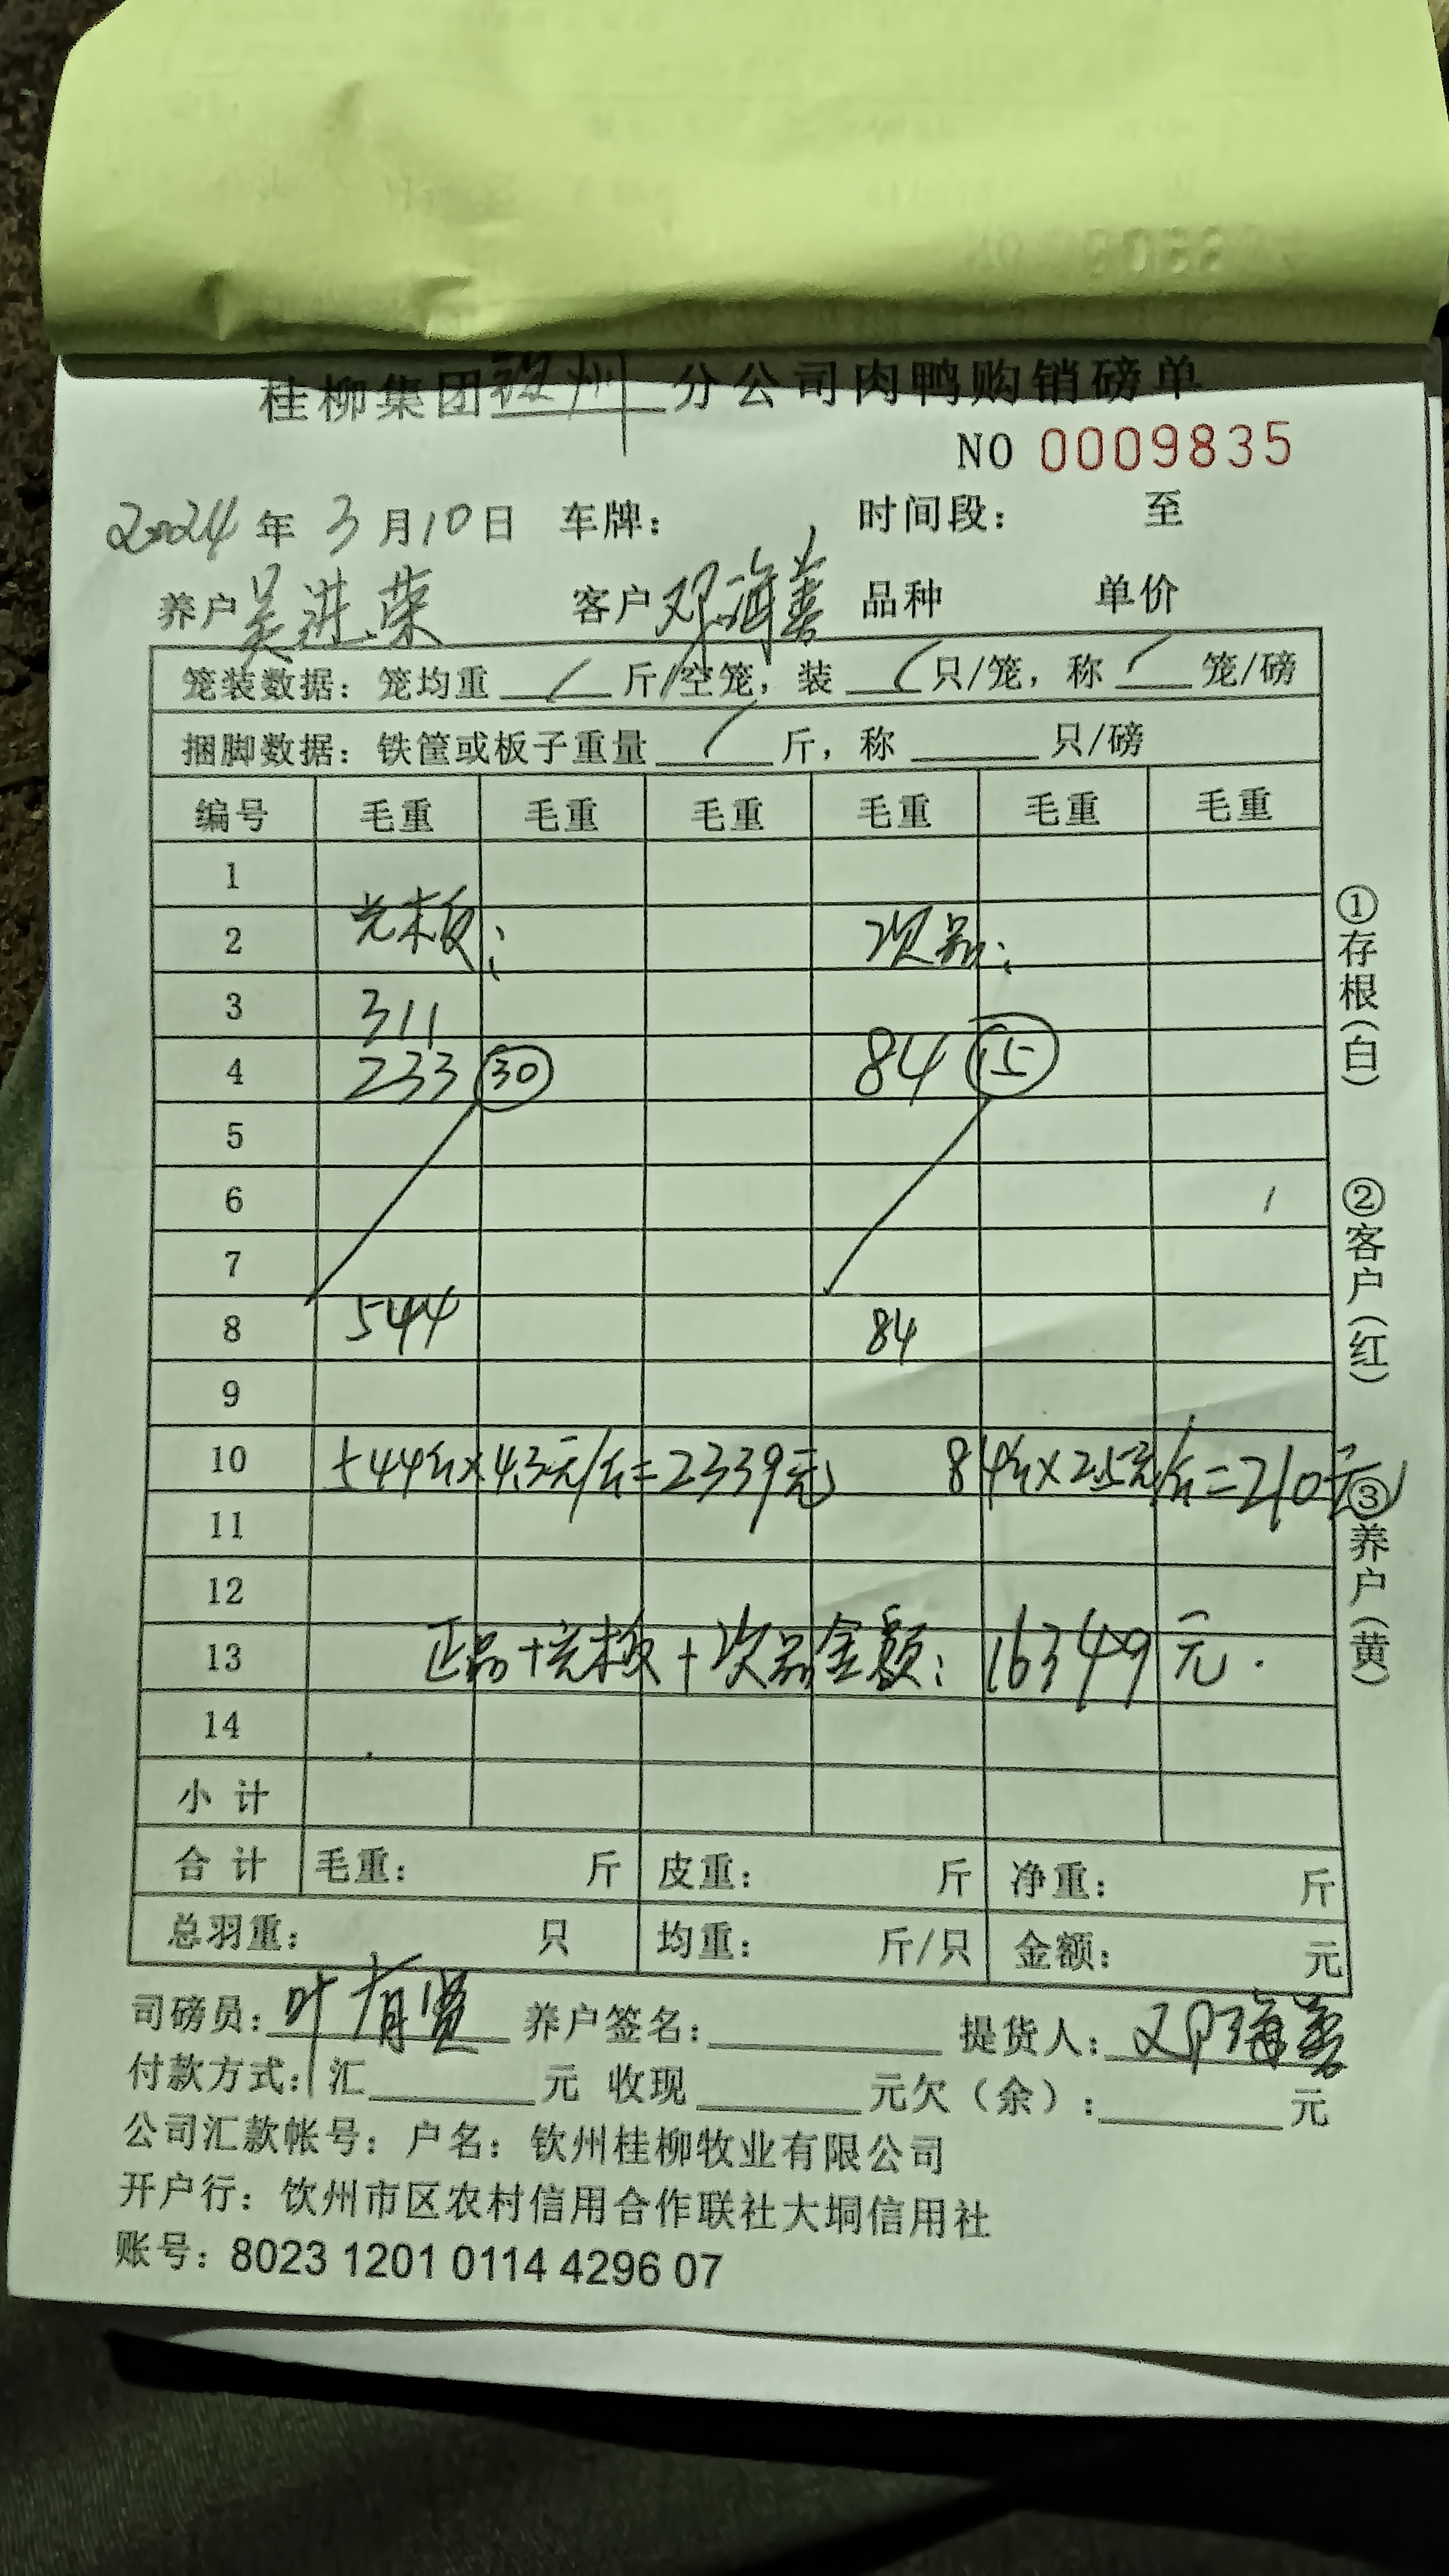 桂柳集团钦州分公司肉鸭购销磅单
NO 0009835
2024年3月10日 车牌： 时间段： 至
养户吴进荣 客户邓海善 品种 单价
笼装数据：笼均重 / 斤/空笼，装 / 只/笼，称 / 笼/磅
捆脚数据：铁筐或板子重量 / 斤，称 只/磅
编号 毛重 毛重 毛重 毛重 毛重 毛重
1
2 光板： 次品：
3 311
4 233 30 84 15
5
6
7
8 544 84
9
10 544斤×4.3元/斤=2339元 84斤×2.5元/斤=210元
11
12
13 正品+光板+次品金额：16349元.
14
小计
合计 毛重： 斤 皮重： 斤 净重： 斤
总羽重： 只 均重： 斤/只 金额： 元
司磅员：叶有贤 养户签名： 提货人：邓海善
付款方式：汇 元 收现 元欠（余）： 元
公司汇款帐号：户名：钦州桂柳牧业有限公司
开户行：钦州市区农村信用合作联社大垌信用社
账号：8023 1201 0114 4296 07
①存根（白） ②客户（红） ③养户（黄）